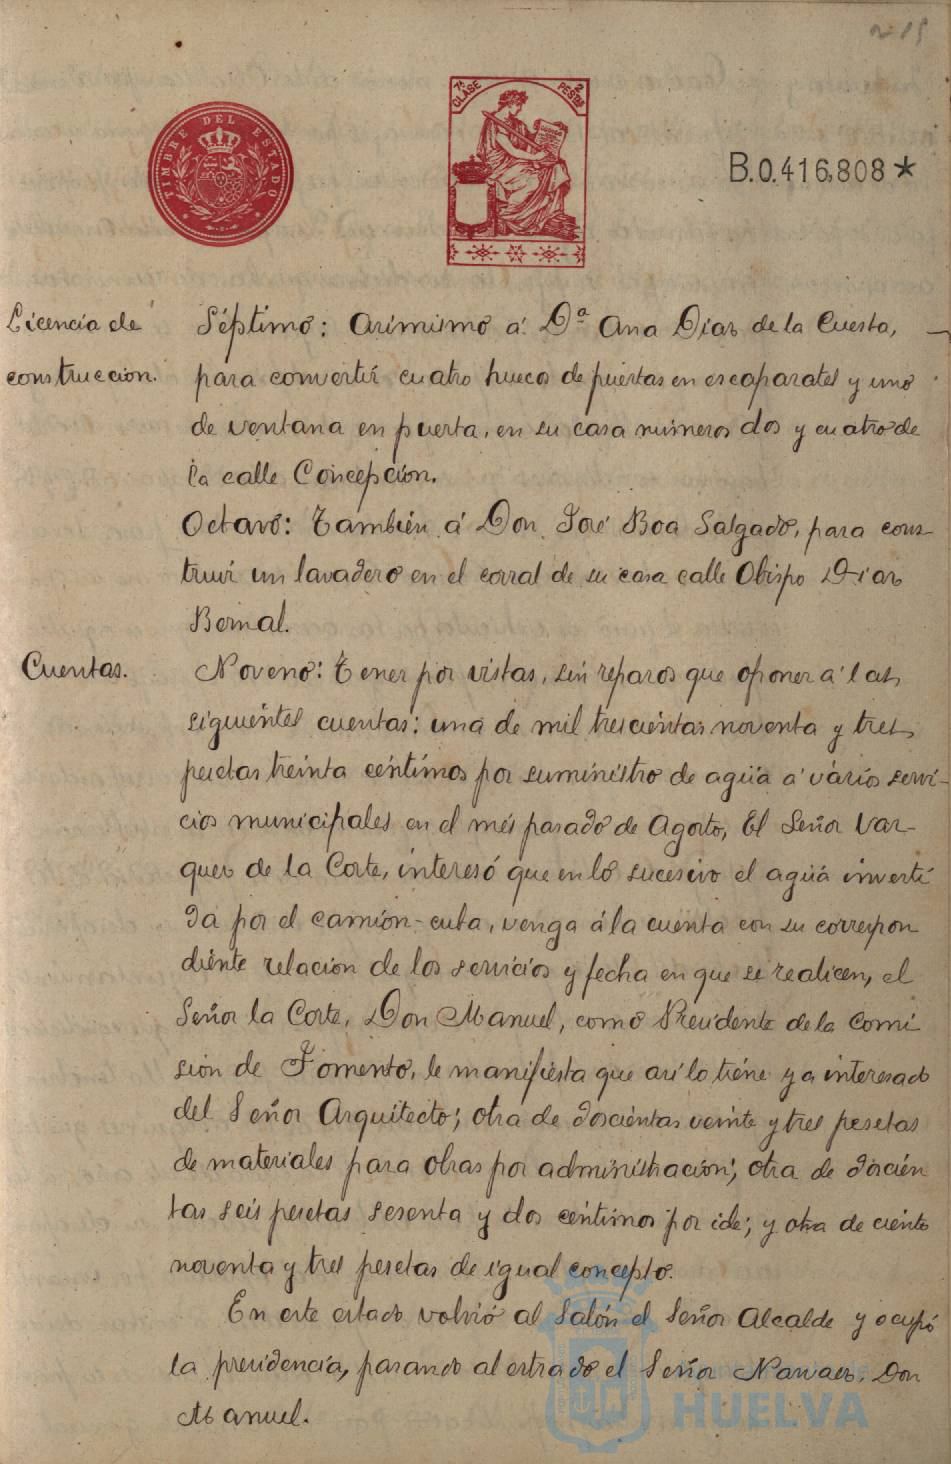 TIMBRE DEL ESTADO
7ª CLASE
2 PESTAS
B.0.416,808*
Licencia de
construccion.
Séptimo: Asimismo á Dª Ana Dias de la Cuesta,
para convertir cuatro huecos de puertas en escaparates y uno
de ventana en puerta, en su casa números dos y cuatro de
la calle Concepción.
Octavo: También á Don José Boa Salgado, para cons-
truir un lavadero en el corral de su casa calle Obispo Dias
Bernal.
Cuentas.
Noveno: Tener por vistas, sin reparos que oponer á las
siguientes cuentas: una de mil trescientas noventa y tres
pesetas treinta céntimos por suministro de agua á varios servi-
cios municipales en el més pasado de Agosto, El Señor Vaz-
ques de la Corte, interesó que en lo sucesivo el agua inverti
da por el camión-cuba, venga á la cuenta con su correspon
diente relación de los servicios y fecha en que se realicen, el
Señor la Corte, Don Manuel, como Presidente de la Comi
sion de Fomento, le manifiesta que así lo tiene ya interesado
del Señor Arquitecto; otra de doscientas veinte y tres pesetas
de materiales para obras por administración; otra de doscien
tas seis pesetas sesenta y dos céntimos por ide; y otra de ciento
noventa y tres pesetas de igual concepto.
En este estado volvió al Salón el Señor Alcalde y ocupó
la presidencia, pasando al estrado el Señor Narvaes, Don
Manuel.
HUELVA